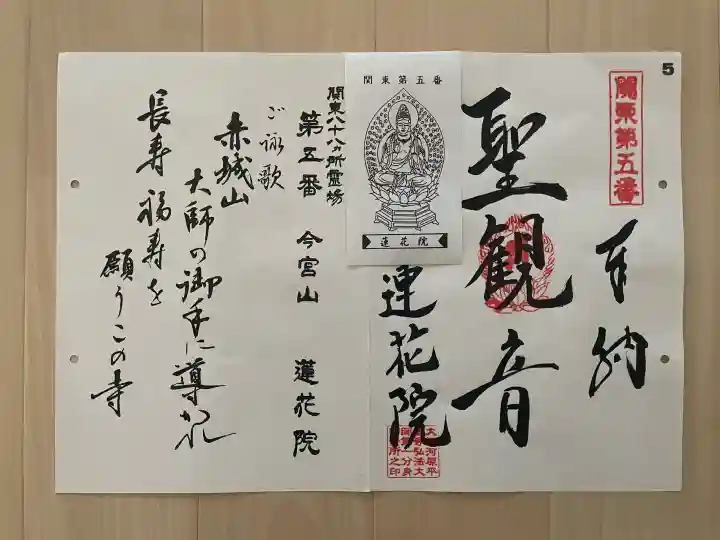 5
関東第五番
奉納
聖観音
蓮花院
関東第五番
蓮花院
関東八十八ヵ所霊場
第五番 今宮山 蓮花院
ご詠歌
赤城山
大師の御手に導かれ
長寿福寿を
願うこの寺